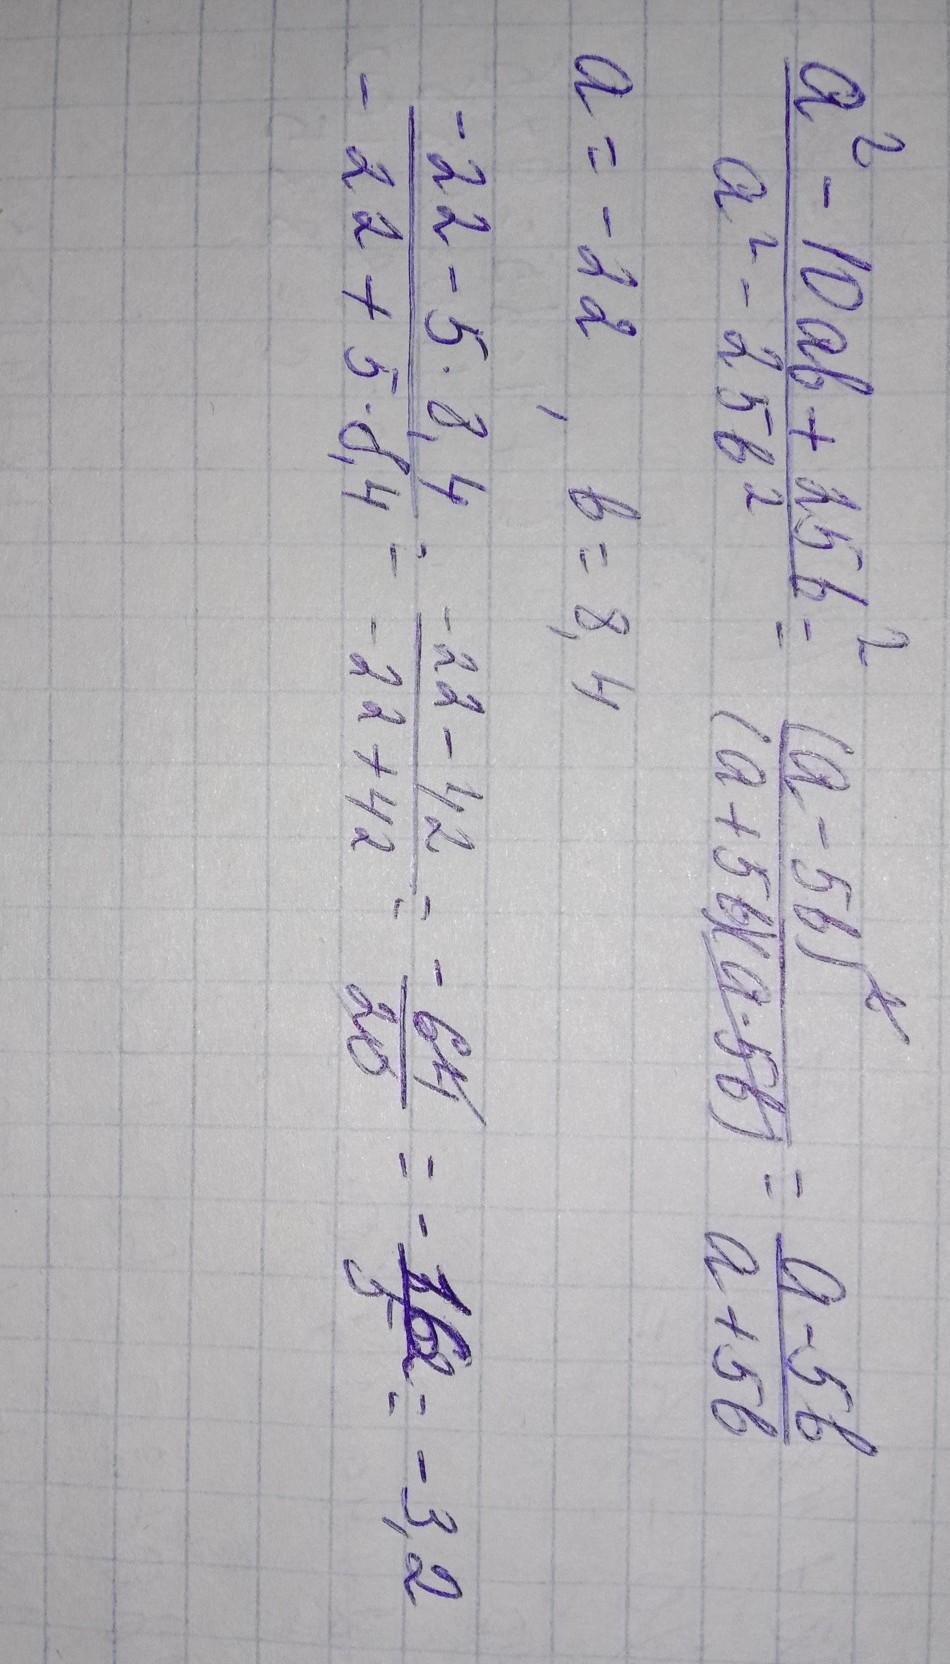 (a² - 10ab + 25b²)/(a² - 25b²) = (a - 5b)²/((a + 5b)(a - 5b)) = (a - 5b)/(a + 5b)
a = -22, b = 8,4
(-22 - 5 · 8,4)/(-22 + 5 · 8,4) = (-22 - 42)/(-22 + 42) = -64/20 = -16/5 = -3,2